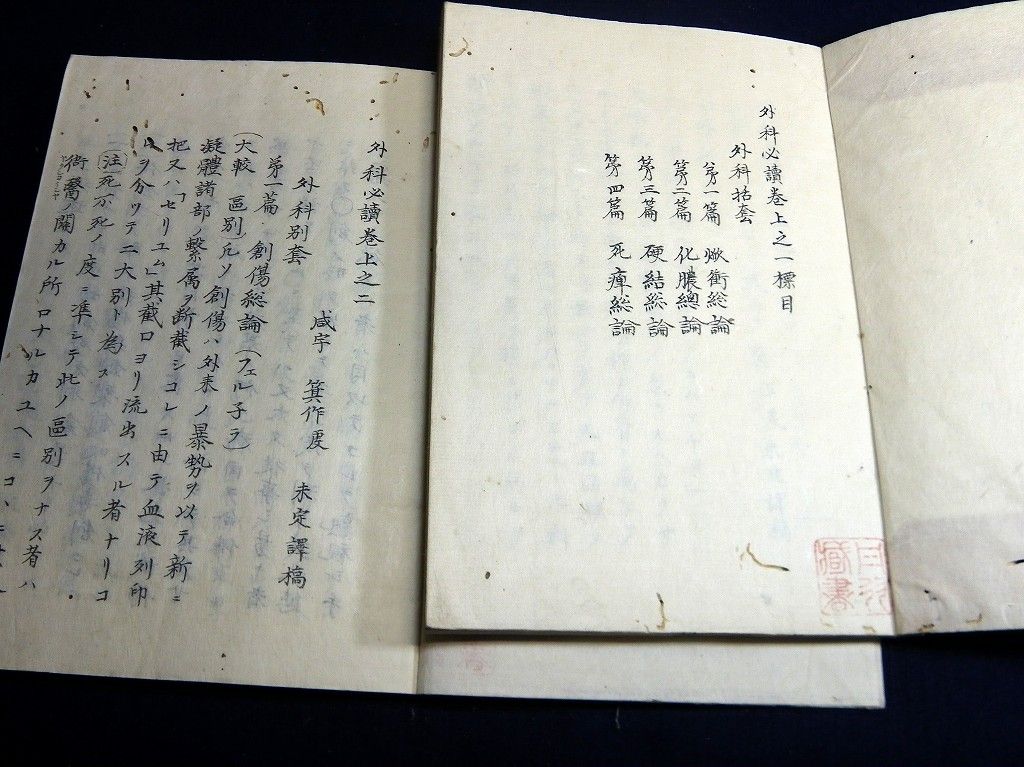 外科必讀巻上之一標目
外科括套
第一篇 焮衝総論
第二篇 化膿總論
第三篇 硬結総論
第四篇 死痺総論
藏書
外科必讀巻上之二
外科別套
咸宇 箕作 未定譯稿
第一篇 創傷総論(フェル子テ)
(大較 区別)凡ソ創傷ハ外来ノ暴勢ヲ以テ新ニ
凝體諸部ノ繋属ヲ断截シコレニ由テ血液列印
把又ハ「セリユム」其截口ヨリ流出スル者ナリコ
ヲ分ツテ二大別ト為ス
(注)死不死ノ度ニ準シテ此ノ區別ヲナス者ハ
衙醫ノ関カル所ロナルカユヘニコ